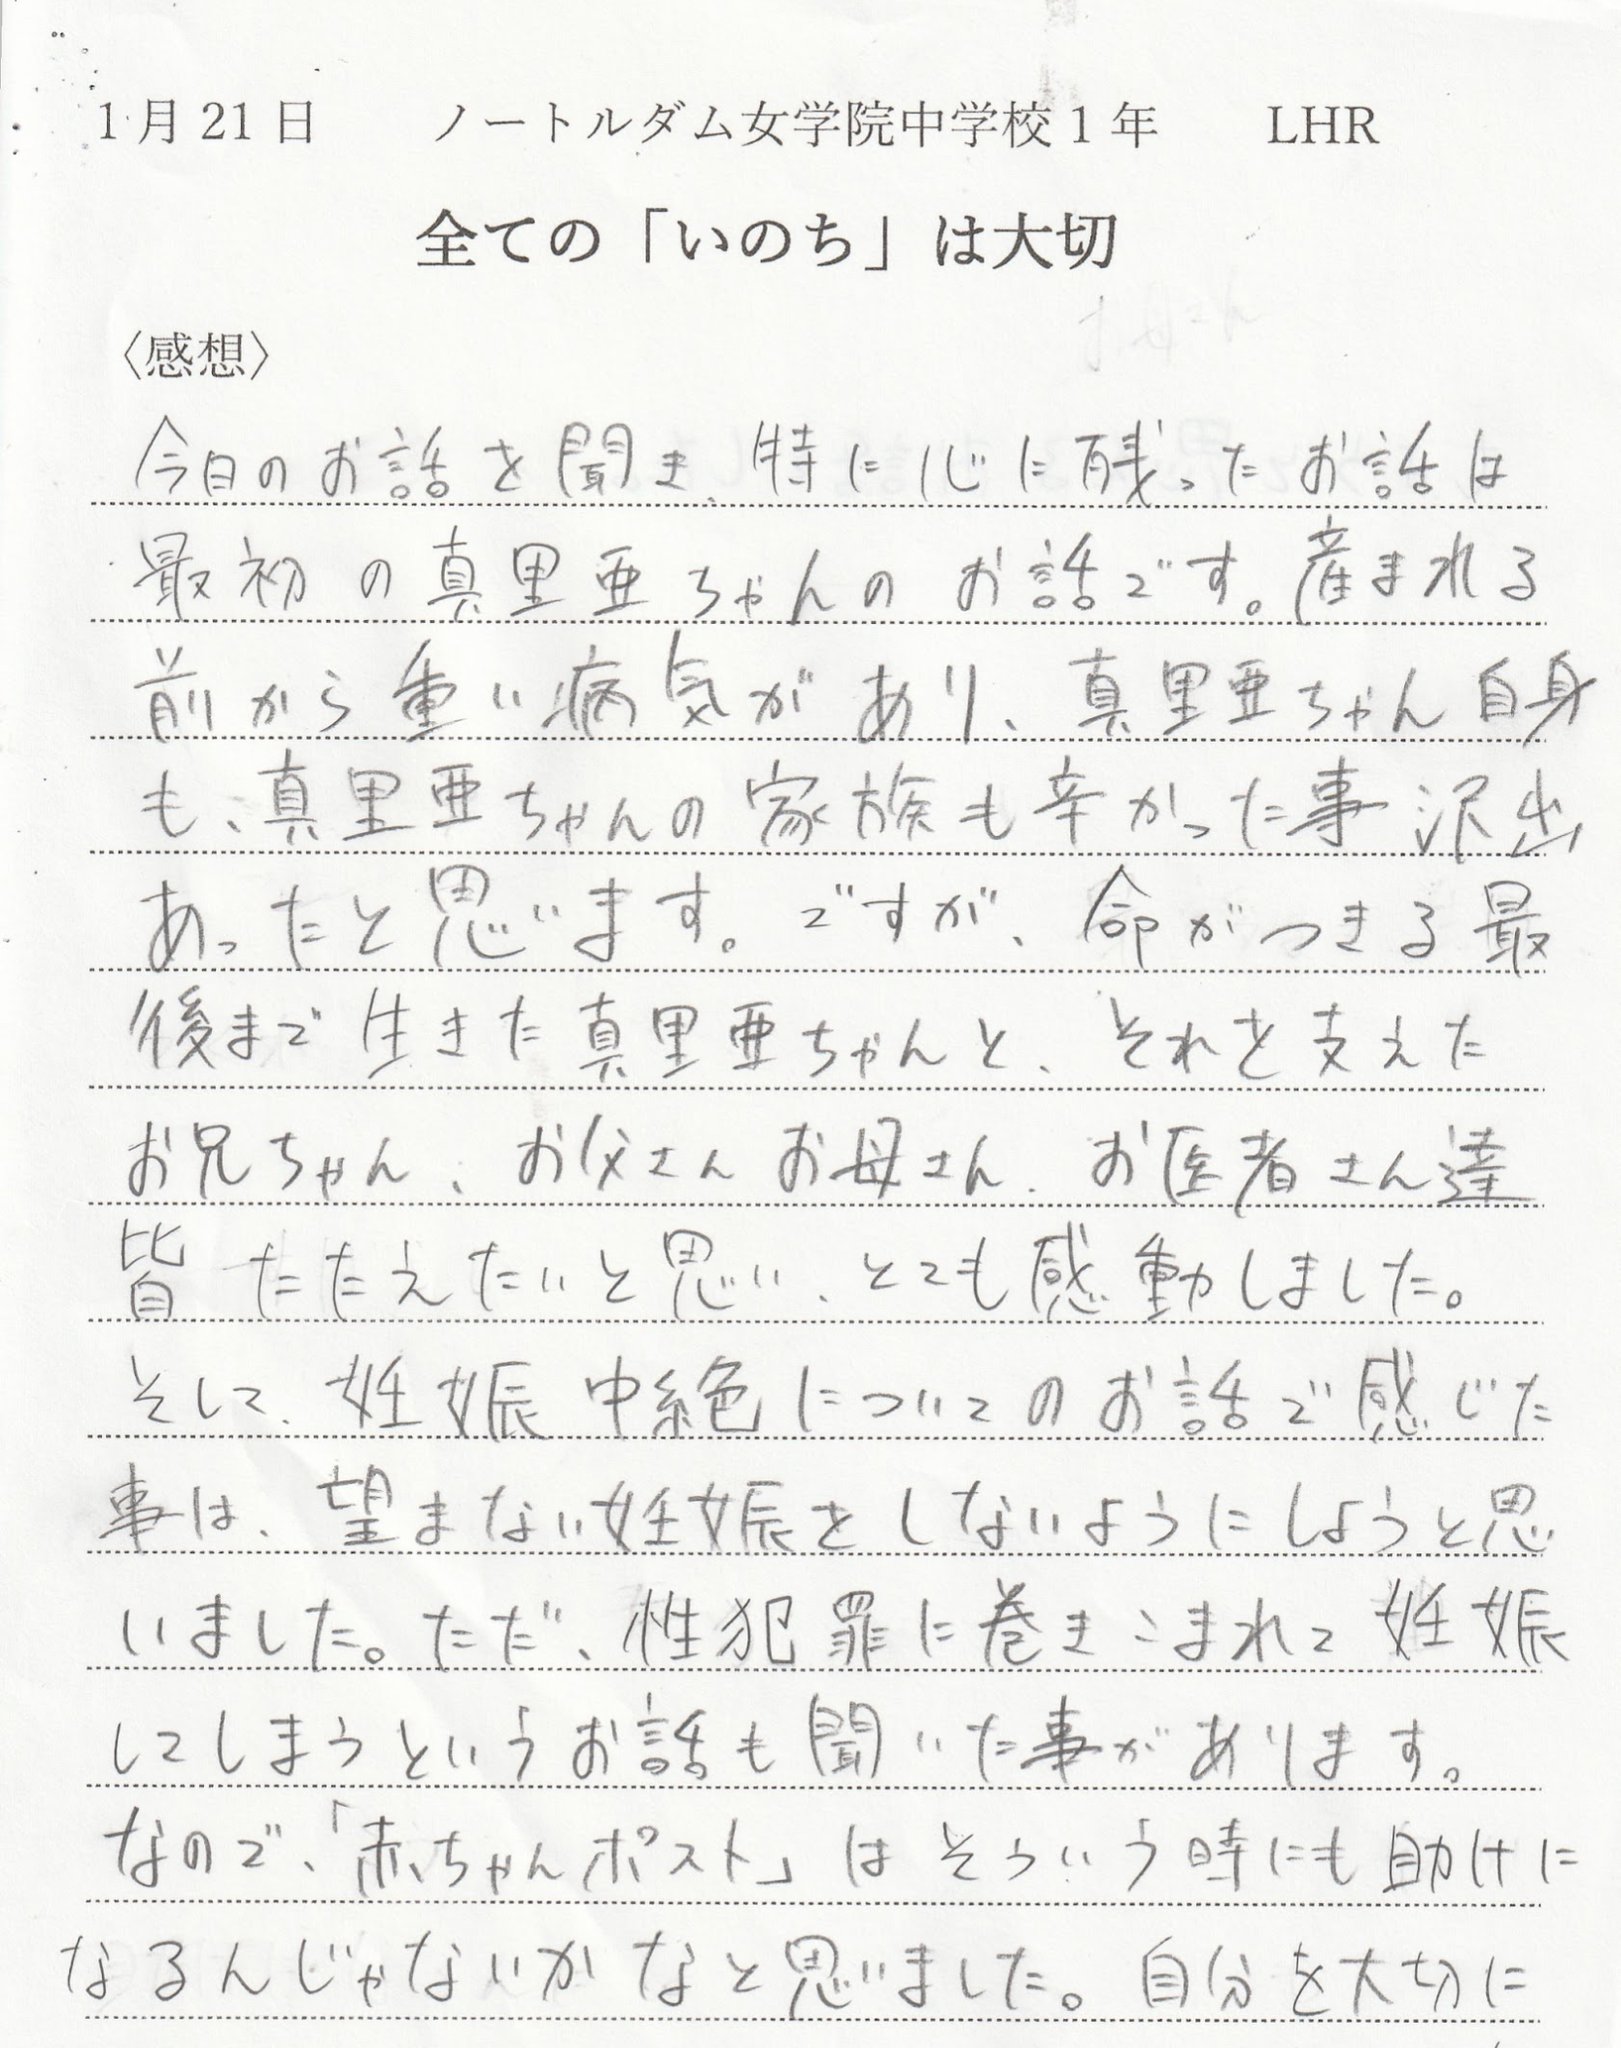 1月21日　ノートルダム女学院中学校1年　LHR
全ての「いのち」は大切
〈感想〉
今日のお話を聞き、特に心に残ったお話は
最初の真里亜ちゃんのお話です。産まれる
前から重い病気があり、真里亜ちゃん自身
も、真里亜ちゃんの家族も辛かった事沢出
あったと思います。ですが、命がつきる最
後まで生きた真里亜ちゃんと、それを支えた
お兄ちゃん、お父さんお母さん、お医者さん達
皆たたえたいと思い、とても感動しました。
そして、妊娠中絶についてのお話で感じた
事は、望まない妊娠をしないようにしようと思
いました。ただ、性犯罪に巻きこまれて妊娠
してしまうというお話も聞いた事があります。
なので、「赤ちゃんポスト」はそういう時にも助けに
なるんじゃないかなと思いました。自分を大切に